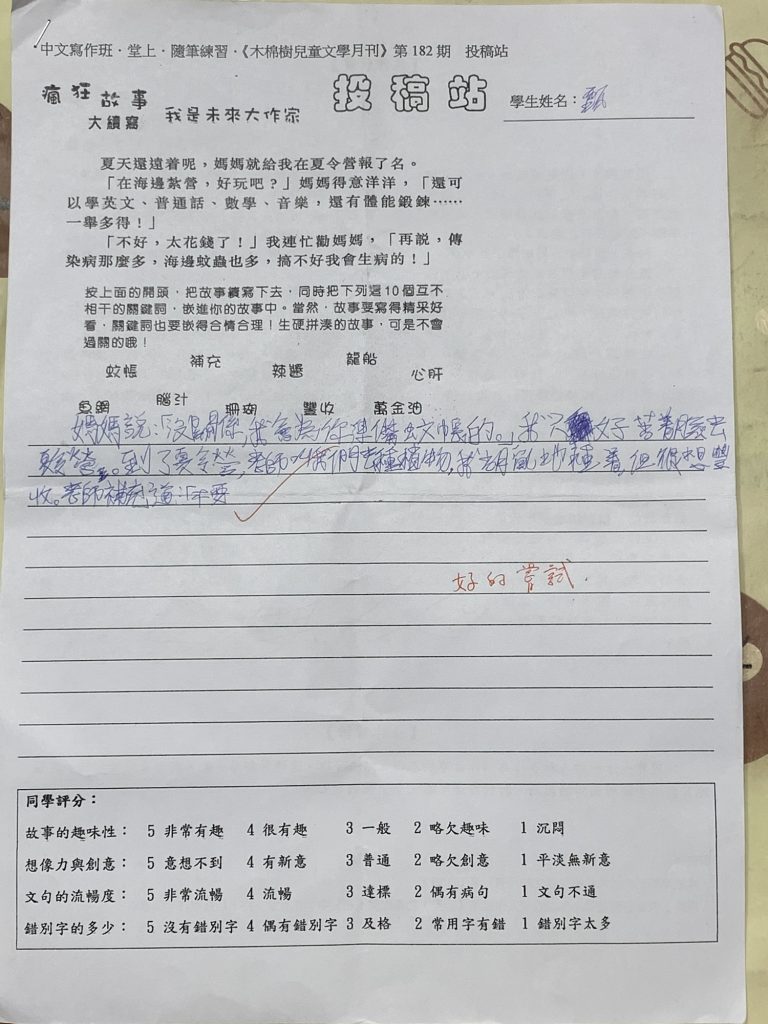 中文寫作班．堂上．隨筆練習．《木棉樹兒童文學月刊》第 182 期　投稿站
瘋狂故事
大續寫
我是未來大作家
投稿站
學生姓名：甄
夏天還遠着呢，媽媽就給我在夏令營報了名。
「在海邊紮營，好玩吧？」媽媽得意洋洋，「還可
以學英文、普通話、數學、音樂，還有體能鍛鍊……
一舉多得！」
「不好，太花錢了！」我連忙勸媽媽，「再說，傳
染病那麼多，海邊蚊蟲也多，搞不好我會生病的！」
按上面的開頭，把故事續寫下去，同時把下列這10個互不
相干的關鍵詞，嵌進你的故事中。當然，故事要寫得精采好
看，關鍵詞也要嵌得合情合理！生硬拼湊的故事，可是不會
過關的哦！
蚊帳　補充　辣醬　龍船　心肝
魚網　腦汁　珊瑚　豐收　萬金油
媽媽說：「沒關係，我會為你準備蚊帳的。」我只好苦着臉去
夏令營。到了夏令營，老師叫我們去種植物，我胡亂地種着，但很想豐
收。老師補充道：「不要
好的嘗試．
同學評分：
故事的趣味性：　5 非常有趣　4 很有趣　3 一般　2 略欠趣味　1 沉悶
想像力與創意：　5 意想不到　4 有新意　3 普通　2 略欠創意　1 平淡無新意
文句的流暢度：　5 非常流暢　4 流暢　3 達標　2 偶有病句　1 文句不通
錯別字的多少：　5 沒有錯別字　4 偶有錯別字　3 及格　2 常用字有錯　1 錯別字太多